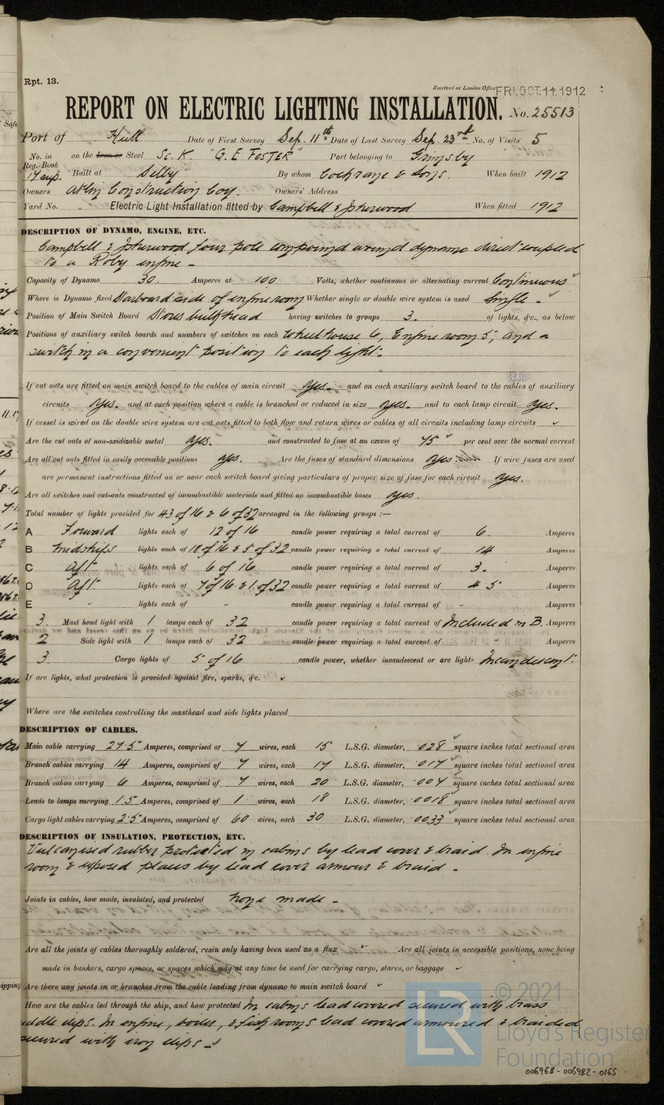 Rpt. 13.
Received at London Office FRI. OCT. 11. 1912
REPORT ON ELECTRIC LIGHTING INSTALLATION. No. 25513
Port of Hull Date of First Survey Sep. 11th Date of Last Survey Sep. 23rd No. of Visits 5
No. in Reg. Book on the Iron or Steel Sc. K. "G. E. FOSTER" Port belonging to Grimsby
17 sup. Built at Selby By whom Cochrane & Sons. When built 1912
Owners Construction Coy. Owners' Address
Yard No. Electric Light Installation fitted by Campbell & Isherwood When fitted 1912
DESCRIPTION OF DYNAMO, ENGINE, ETC.
Campbell & Isherwood four pole compound wound dynamo direct coupled
to a Roby engine -
Capacity of Dynamo 30. Amperes at 100 Volts, whether continuous or alternating current Continuous
Where is Dynamo fixed Starboard side of engine room Whether single or double wire system is used Single -
Position of Main Switch Board bulkhead having switches to groups 3. of lights, &c., as below
Positions of auxiliary switch boards and numbers of switches on each Wheelhouse 6, Engine room 5, and a
switch in a convenient position to each light.
If cut outs are fitted on main switch board to the cables of main circuit yes. and on each auxiliary switch board to the cables of auxiliary
circuits yes. and at each position where a cable is branched or reduced in size yes. and to each lamp circuit yes.
If vessel is wired on the double wire system are cut outs fitted to both flow and return wires or cables of all circuits including lamp circuits
Are the cut outs of non-oxidizable metal yes. and constructed to fuse at an excess of 45 per cent over the normal current
Are all cut outs fitted in easily accessible positions yes. Are the fuses of standard dimensions yes. If wire fuses are used
are permanent instructions fitted on or near each switch board giving particulars of proper size of fuse for each circuit yes.
Are all switches and cut-outs constructed of incombustible materials and fitted on incombustible bases yes.
Total number of lights provided for 43 of 16 & 6 of 32 arranged in the following groups :—
A Forward lights each of 12 of 16 candle power requiring a total current of 6. Amperes
B Midships lights each of 18 of 16 & 5 of 32 candle power requiring a total current of 14 Amperes
C Aft. lights each of 6 of 16 candle power requiring a total current of 3. Amperes
D Aft. lights each of 7 of 16 & 1 of 32 candle power requiring a total current of 4.5 Amperes
E lights each of candle power requiring a total current of Amperes
3. Mast head light with 1 lamps each of 32 candle power requiring a total current of Included in B. Amperes
2 Side light with 1 lamps each of 32 candle power requiring a total current of " Amperes
3. Cargo lights of 5 of 16 candle power, whether incandescent or arc lights Incandescent.
If arc lights, what protection is provided against fire, sparks, &c.
Where are the switches controlling the masthead and side lights placed
DESCRIPTION OF CABLES.
Main cable carrying 27.5 Amperes, comprised of 7 wires, each 15 L.S.G. diameter, .028 square inches total sectional area
Branch cables carrying 14 Amperes, comprised of 7 wires, each 17 L.S.G. diameter, .017 square inches total sectional area
Branch cables carrying 6 Amperes, comprised of 7 wires, each 20 L.S.G. diameter, .007 square inches total sectional area
Leads to lamps carrying 1.5 Amperes, comprised of 1 wires, each 18 L.S.G. diameter, .0018 square inches total sectional area
Cargo light cables carrying 2.5 Amperes, comprised of 60 wires, each 30 L.S.G. diameter, .0033 square inches total sectional area
DESCRIPTION OF INSULATION, PROTECTION, ETC.
Vulcanised rubber protected in cabins by lead cover & braid In engine
room & exposed places by lead cover armour & braid -
Joints in cables, how made, insulated, and protected none made -
Are all the joints of cables thoroughly soldered, resin only having been used as a flux Are all joints in accessible positions, none being
made in bunkers, cargo spaces, or spaces which may at any time be used for carrying cargo, stores, or baggage
Are there any joints in or branches from the cable leading from dynamo to main switch board
How are the cables led through the ship, and how protected In cabins lead covered secured with brass
saddle clips. In engine, boiler, & fish rooms lead covered armoured & braided
secured with iron clips -
© 2021
Lloyd's Register
Foundation
006968 - 006982 - 0165